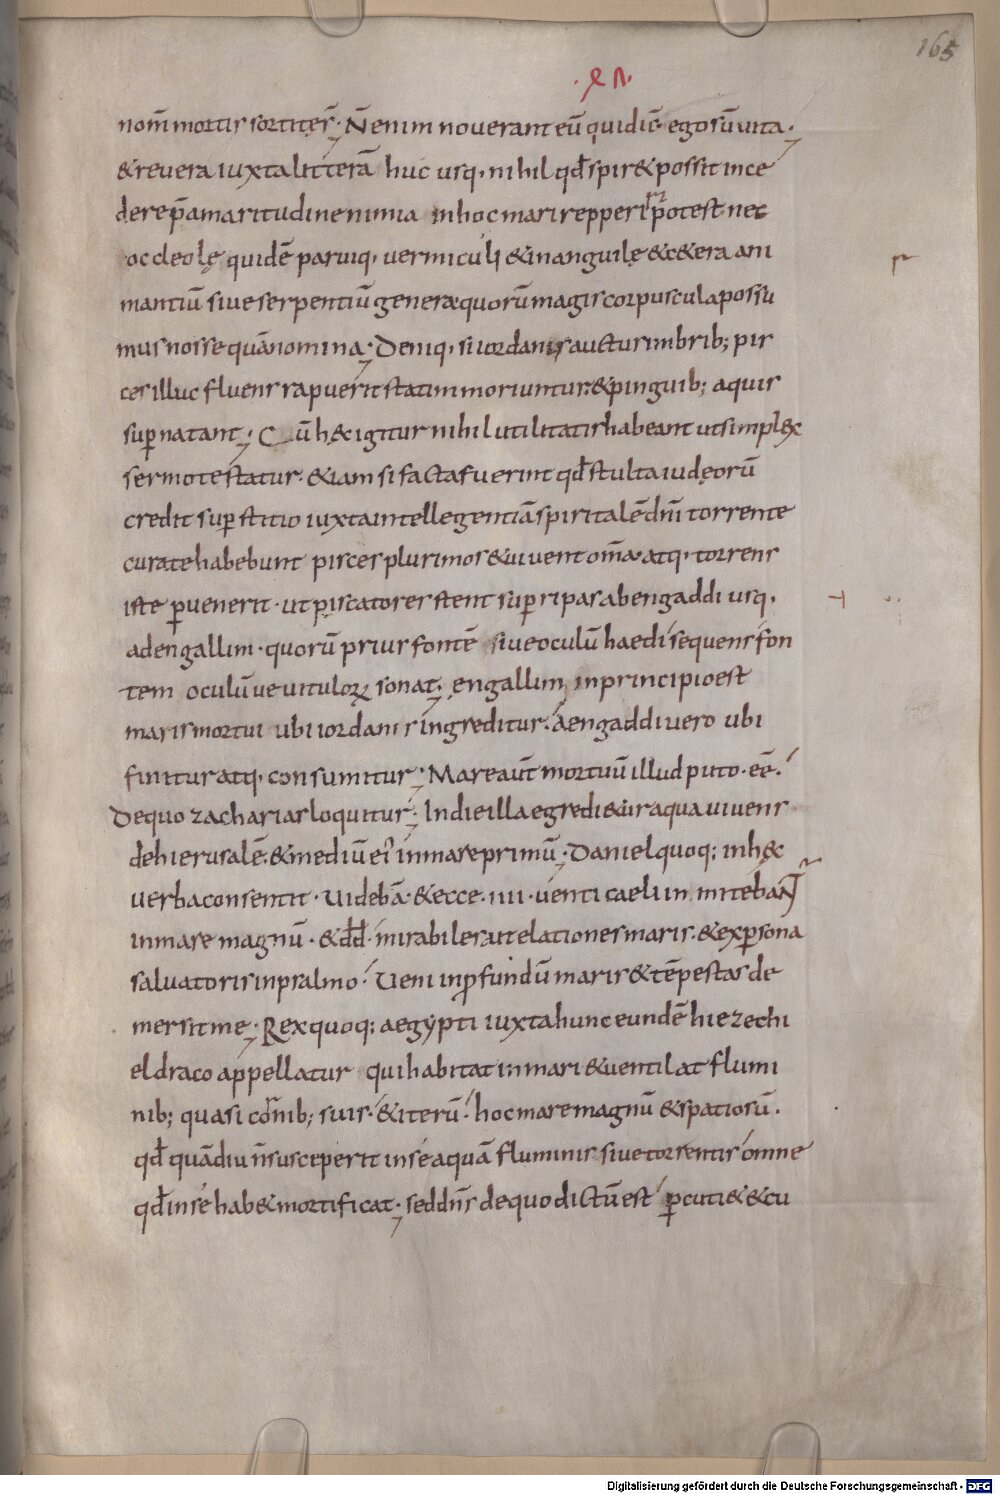 165
nom̄ mortis sortitęs̄. N̄ enim noverant eū qui dix̄. ego sū vita.
& revera iuxta litterā huc usq. nihil qd̄ spir& possit ince
dere p̄ amaritudine nimia in hoc mari repperi p̄otest nec
occleolę quidē parviq. vermiculi & in anguilę & c&era ani
mantiū sive serpentiū genera quorū magis corpuscula possu
mus nosse quā nomina. Deniq. si iordanis auctus imbrib; pis
ces illuc fluens rapuerit statim moriuntur. & pinguib; aquis
sup natant. Cū hęc igitur nihil utilitatis habeant ut simplex
sermo testatur. &iam si facta fuerint qd̄ stulta iudęorū
credit sup stitio iuxta intellegentiā spiritalē dn̄i torrente
curate habebunt pisces plurimos & vivent om̄a. atq. torrens
iste p venerit. ut piscatores stent sup ripas ab engaddi usq.
ad engallim. quorū prius fontē sive oculū haedi sequens fon
tem oculū ve vitulorꝝ sonat. engallim in principio est
maris mortui ubi iordanis ingreditur. Aengaddi vero ubi
finitur atq. consumitur. Mare aūt mortuū illud puto. eē.
De quo zacharias loquitur. In die illa egredi&ur aqua vivens
de hierusalē. & mediū ei' in mare primū. Daniel quoq; in hęc
verba consentit. Videbā. & ecce. iiii. venti caeli inmitebant
in mare magnū. & dd̄. mirabiles aut elationes maris. & ex psona
salvatoris in psalmo. Veni in pfundū maris & tēpestas de
mersit me. Rex quoq; aegypti iuxta hunc eundē hiezechi
el draco appellatur qui habitat in mari & ventilat flumi
nib; quasi cornib; suis. & iterū. hoc mare magnū & spatiosū.
qd̄ quādiu n̄ susceperit in se aquā fluminis sive torrentis omne
qd̄ in se hab& mortificat. sed dn̄s de quo dictū est p cuti& & cu
Digitalisierung gefördert durch die Deutsche Forschungsgemeinschaft - DFG